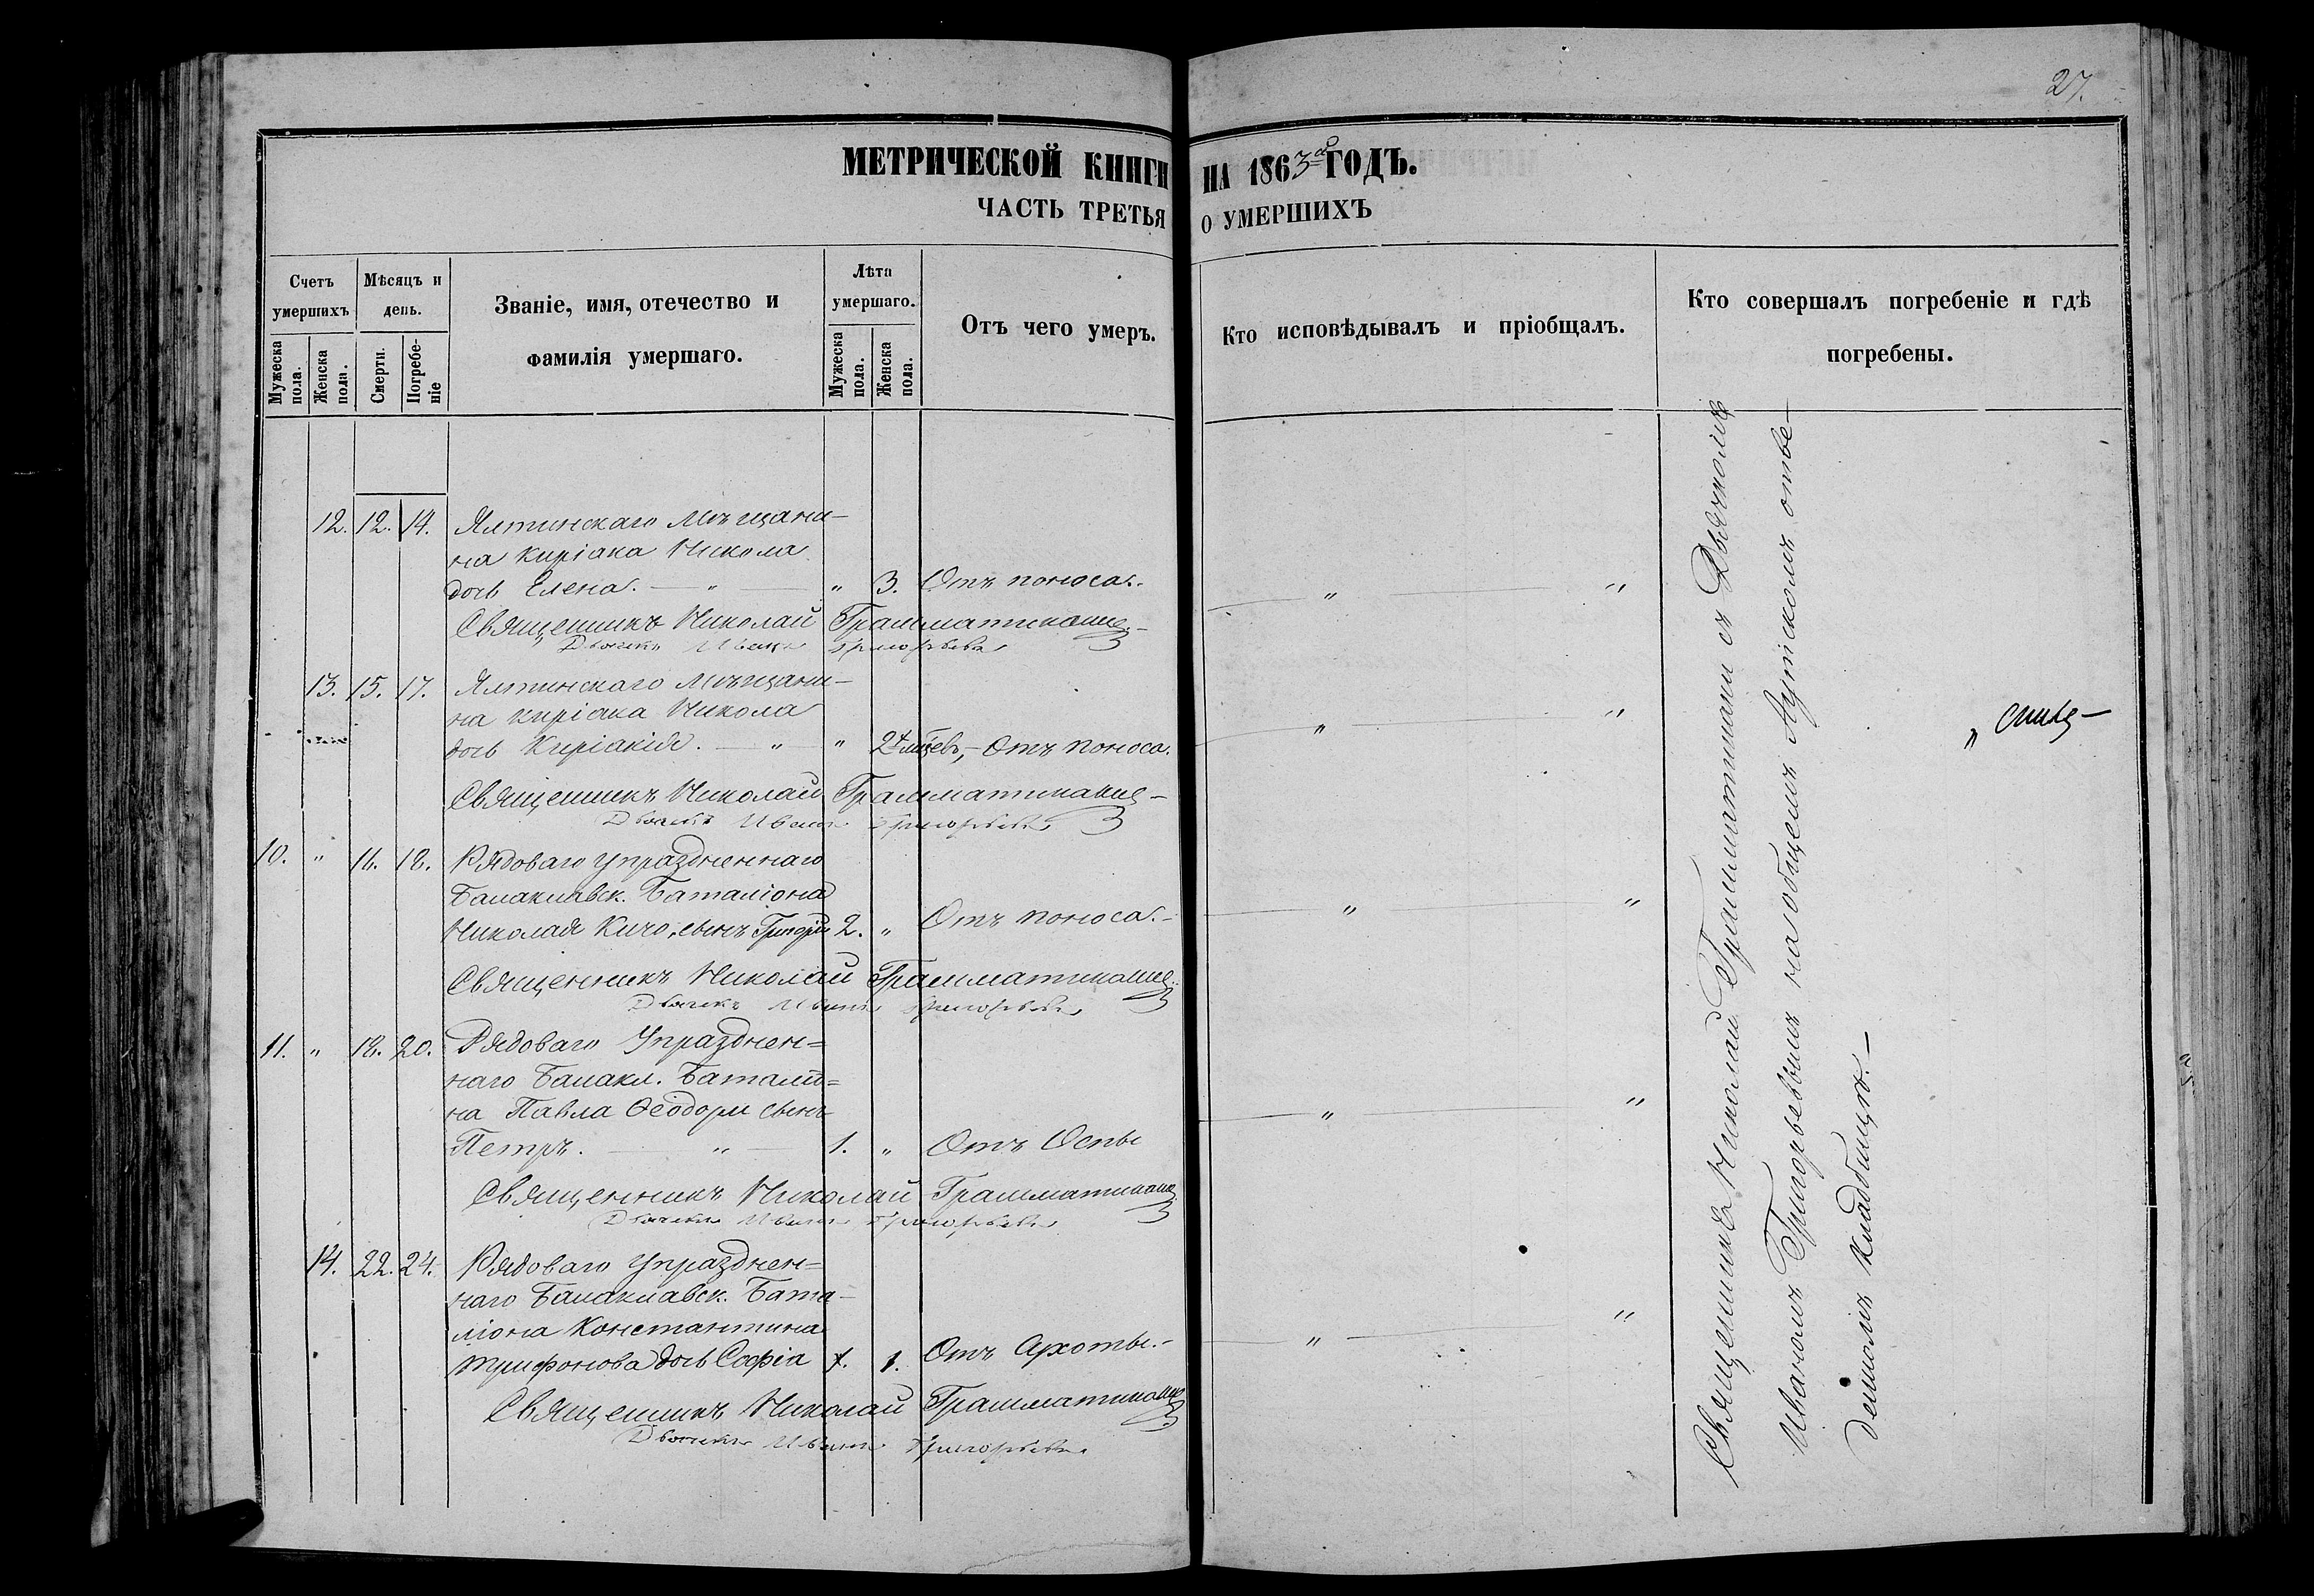 27.
МЕТРИЧЕСКОЙ КНИГИ НА 1863 ГОДЪ.
ЧАСТЬ ТРЕТЬЯ О УМЕРШИХЪ
Счетъ умершихъ
Мѣсяцъ и день.
Званіе, имя, отечество и фамилія умершаго.
Лѣта умершаго.
Отъ чего умеръ.
Кто исповѣдывалъ и пріобщалъ.
Кто совершалъ погребеніе и гдѣ погребены.
Мужеска пола.
Женска пола.
Смерти.
Погребеніе
Мужеска пола.
Женска пола.
12. 12. 14. Ялтинскаго мѣщани-
на Киріака Никола
дочь Елена. — " — " 3. Отъ поноса. — " — "
Священникъ Николай Грамматикопуло
Дьячекъ Иванъ Григорьевъ
13. 15. 17. Ялтинскаго мѣщани-
на Киріака Никола
дочь Киріакія. — " — " Отъ поноса. — " — "
Священникъ Николай
Дьячекъ Иванъ Григорьевъ
10. " 16. 18. Рядоваго упраздненнаго
Балаклавск. Баталіона
Николая Кичо, сынъ Григорій 2. " Отъ поноса. — " — "
Священникъ Николай
Дьячекъ Иванъ Григорьевъ
11. " 18. 20. Рядоваго Упразднен=
наго Балакл. Баталіо=
на Павла Ѳеодори сынъ
Петръ. — " — 1. " Отъ Оспы — " — "
Священникъ Николай
Дьячекъ Иванъ Григорьевъ
14. 22. 24. Рядоваго Упразднен=
наго Балаклавск. Бата-
ліона Константина
Трифонова дочь Софія 1. Отъ — " — "
Священникъ Николай
Дьячекъ Иванъ Григорьевъ
Священникъ Николай съ Дьячкомъ
Иваномъ Григорьевымъ на общемъ Аутскомъ отве-
денномъ кладбищѣ. —